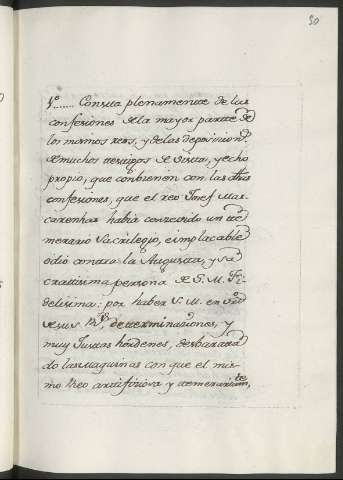 50
1º....... Consta plenamente de las
confesiones dela mayor partte de
los mismos reos, y delas deposicion.s
de muchos testigos de vista, y echo
propio, que conbienen con las dhas
confesiones, que el reo Josef Mas-
carenhas habia concevido un te-
merario Sacrilegio, e implacable
odio contra la Augusta, y Sa-
crattisima persona de S. M. Fi-
delisima: por haber S. M. en
determinasiones, y
muy Justas hórdenes, desbarata-
do las maquinas con que el mis-
mo Reo artifiosa y temerariam.te